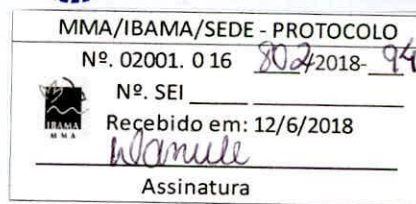 MMA/IBAMA/SEDE - PROTOCOLO
Nº. 02001. 0 16 802/2018- 94
Nº. SEI
IBAMA
M M A
Recebido em: 12/6/2018
Assinatura